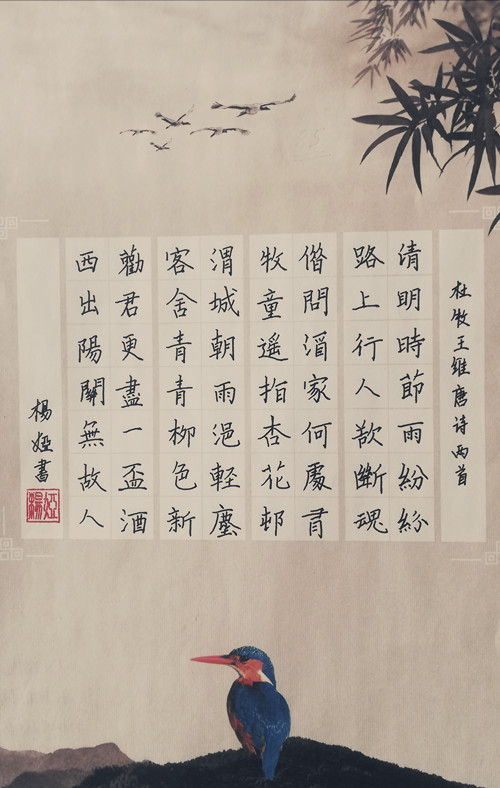 杜牧王維唐诗两首
清明時節雨紛紛
路上行人欲斷魂
借問酒家何處有
牧童遥指杏花邨
渭城朝雨浥軽塵
客舍青青柳色新
勸君更盡一盃酒
西出陽關無故人
楊婭書
婭楊